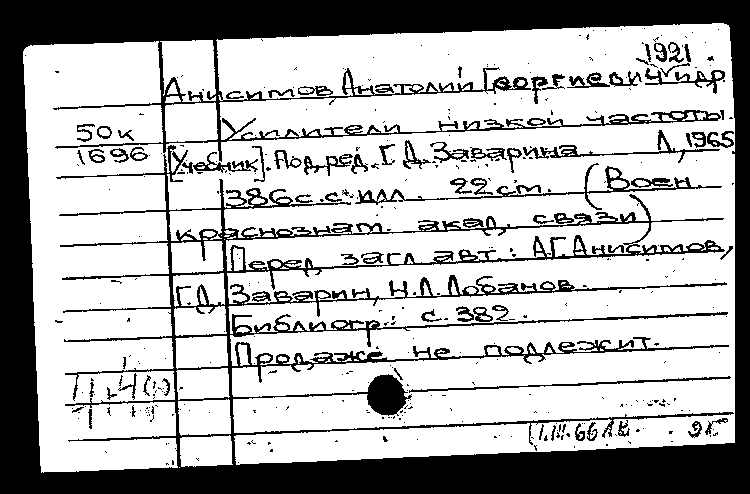 1921
Анисимов, Анатолий Георгиевич и др
50к Усилители низкой частоты.
1696 [Учебник]. Под ред. Г.Д. Заварина. Л, 1965
386с. с илл. 22 cm. (Воен.
краснознам. акад. связи)
Перед загл авт.: А.Г. Анисимов,
Г.Д. Заварин, Н.Л. Лобанов.
Библиогр.: с. 382.
Продаже не подлежит.